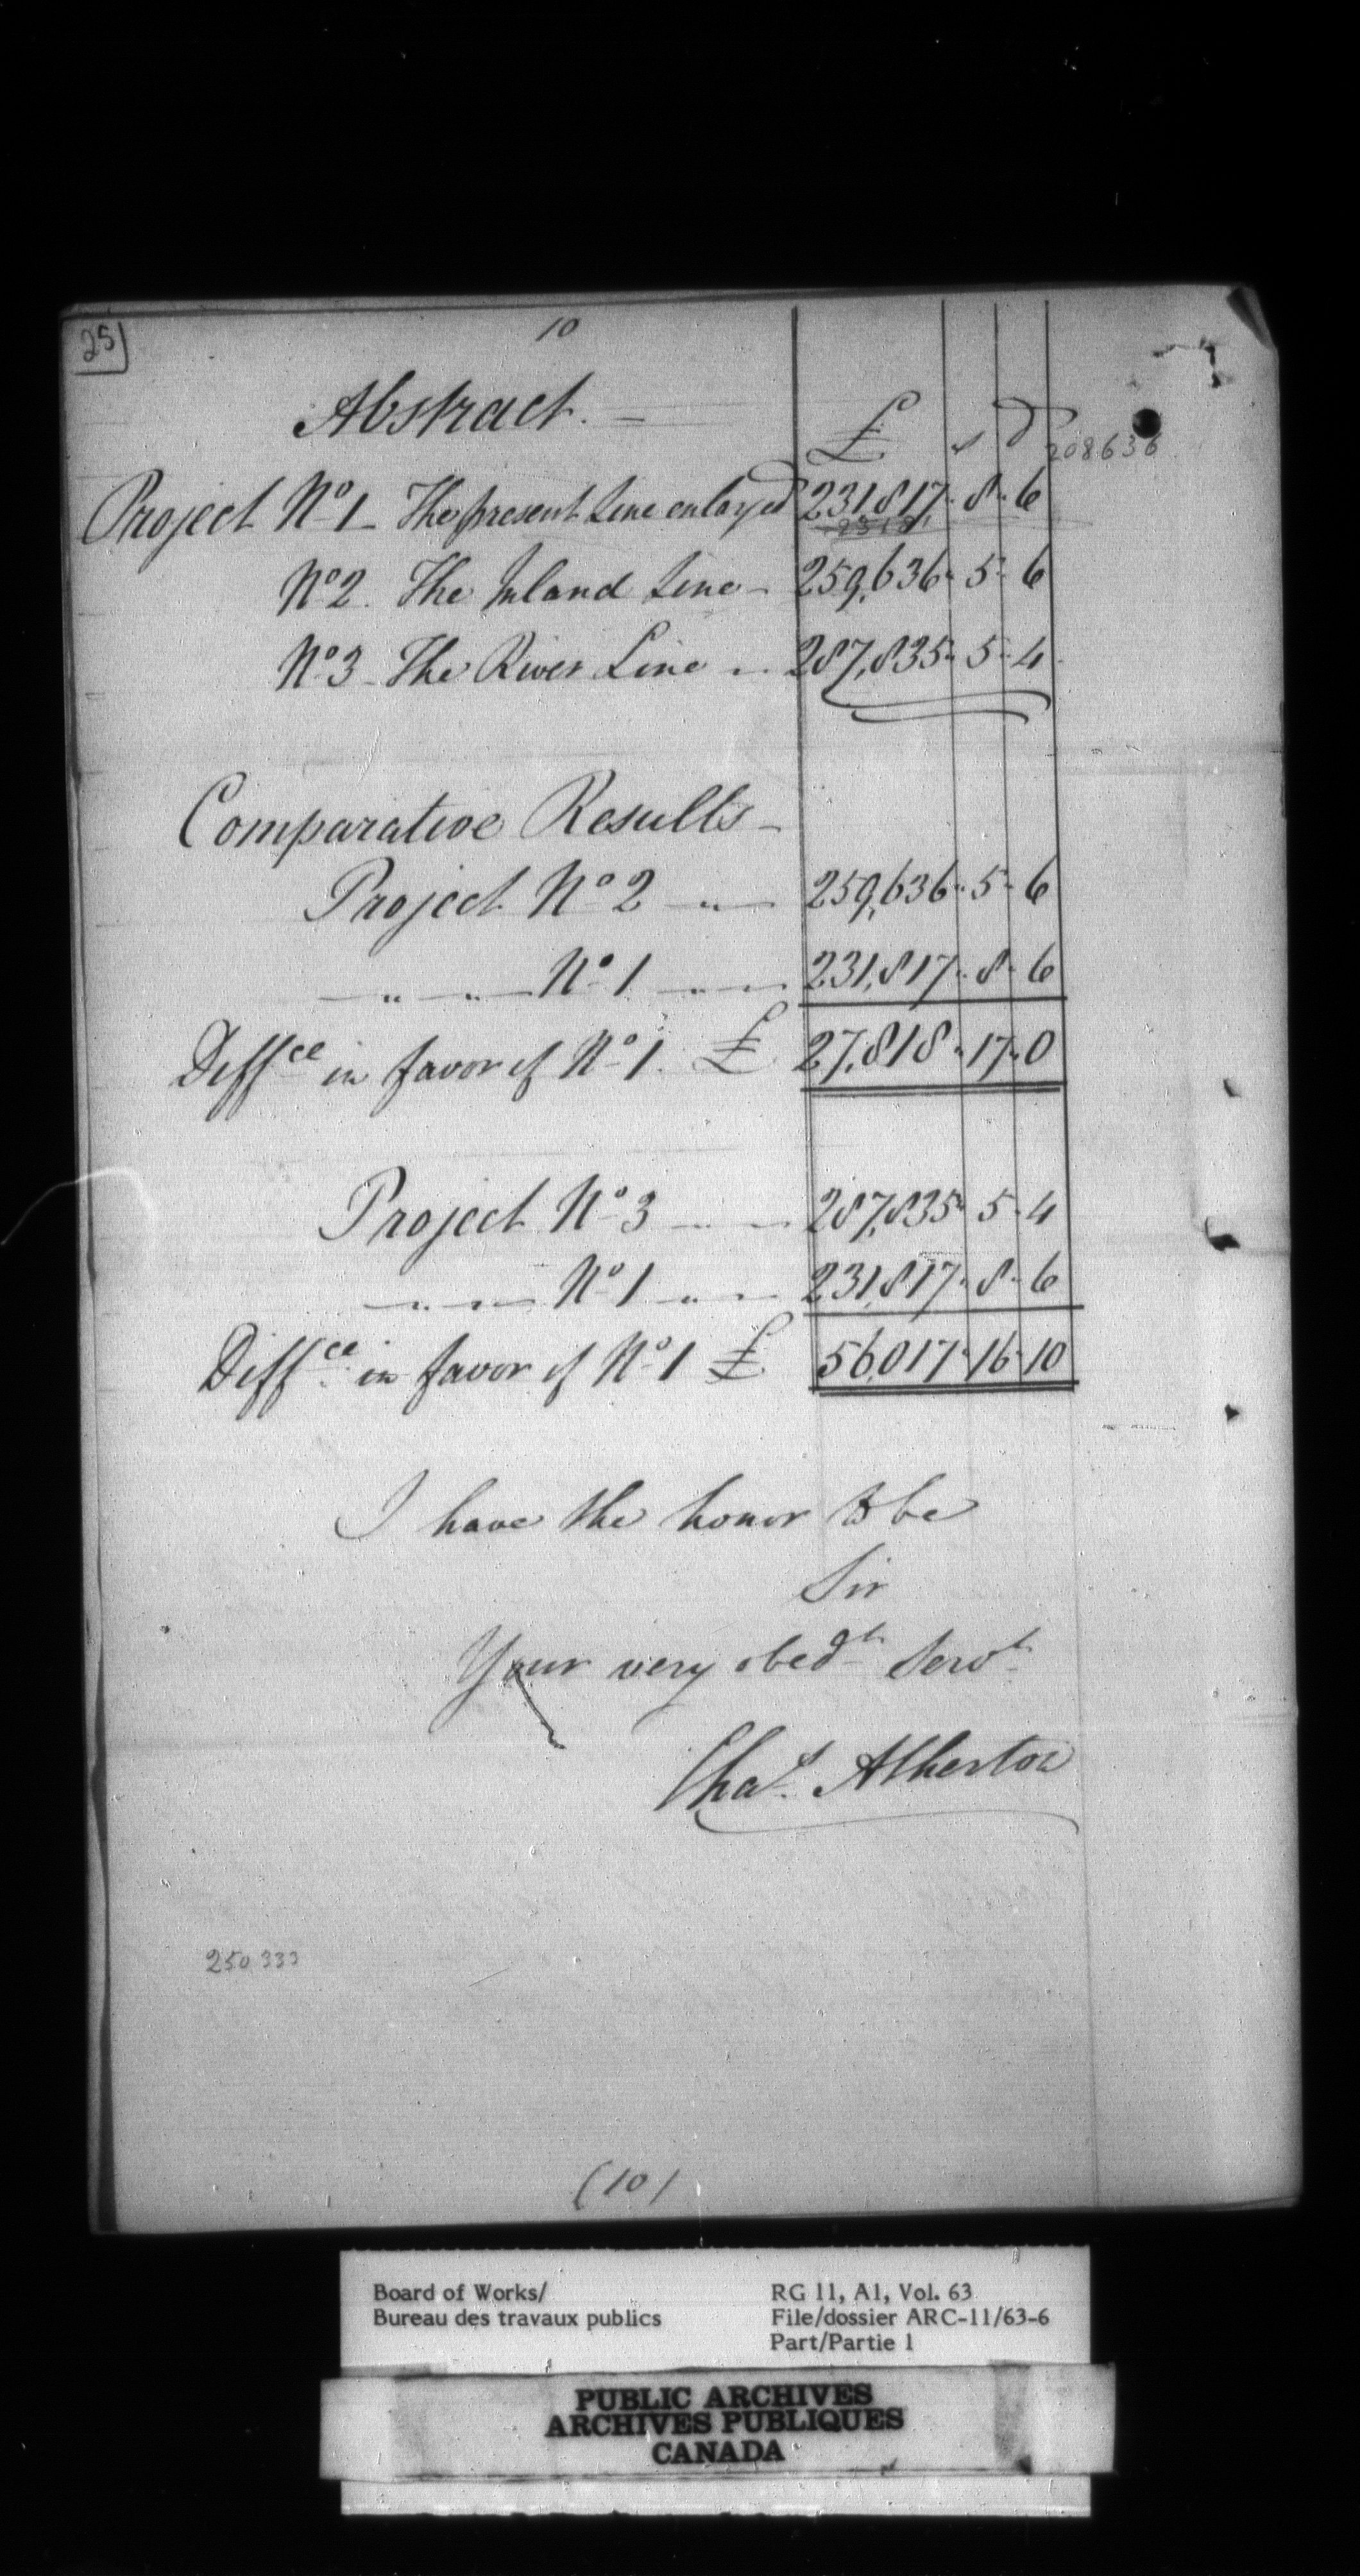 25
10
Abstract. £ s d
208636
Project No 1 - The present Line enlarged 231,817 " 8 " 6
No 2. The Inland Line - 259,636 " 5 " 6
No 3 - The River Line " 287,835 " 5 " 4
Comparative Results -
Project No 2 " 259,636 " 5 " 6
" " No 1 " 231,817 " 8 " 6
Diffce in favor of No 1. £ 27,818 " 17 " 0
Project No 3 " 287,835 " 5 " 4
" " No 1 " 231,817 " 8 " 6
Diffce in favor of No 1 £ 56,017 " 16 " 10
I have the honor to be
Sir
Your very obedt Servt
Chas. Atherton
250 333
(10)
Board of Works/ RG 11, A1, Vol. 63
Bureau des travaux publics File/dossier ARC-11/63-6
Part/Partie 1
PUBLIC ARCHIVES
ARCHIVES PUBLIQUES
CANADA